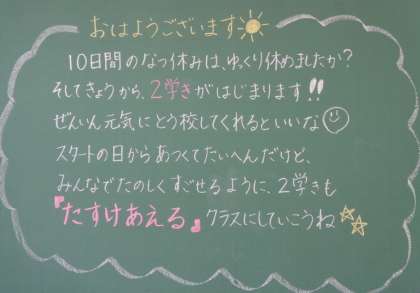 おはようございます
10日間のなつ休みは、ゆっくり休めましたか?
そしてきょうから、2学きがはじまります!!
ぜんいん元気にとう校してくれるといいな
スタートの日からあつくてたいへんだけど、
みんなでたのしくすごせるように、2学きも
『たすけあえる』クラスにしていこうね